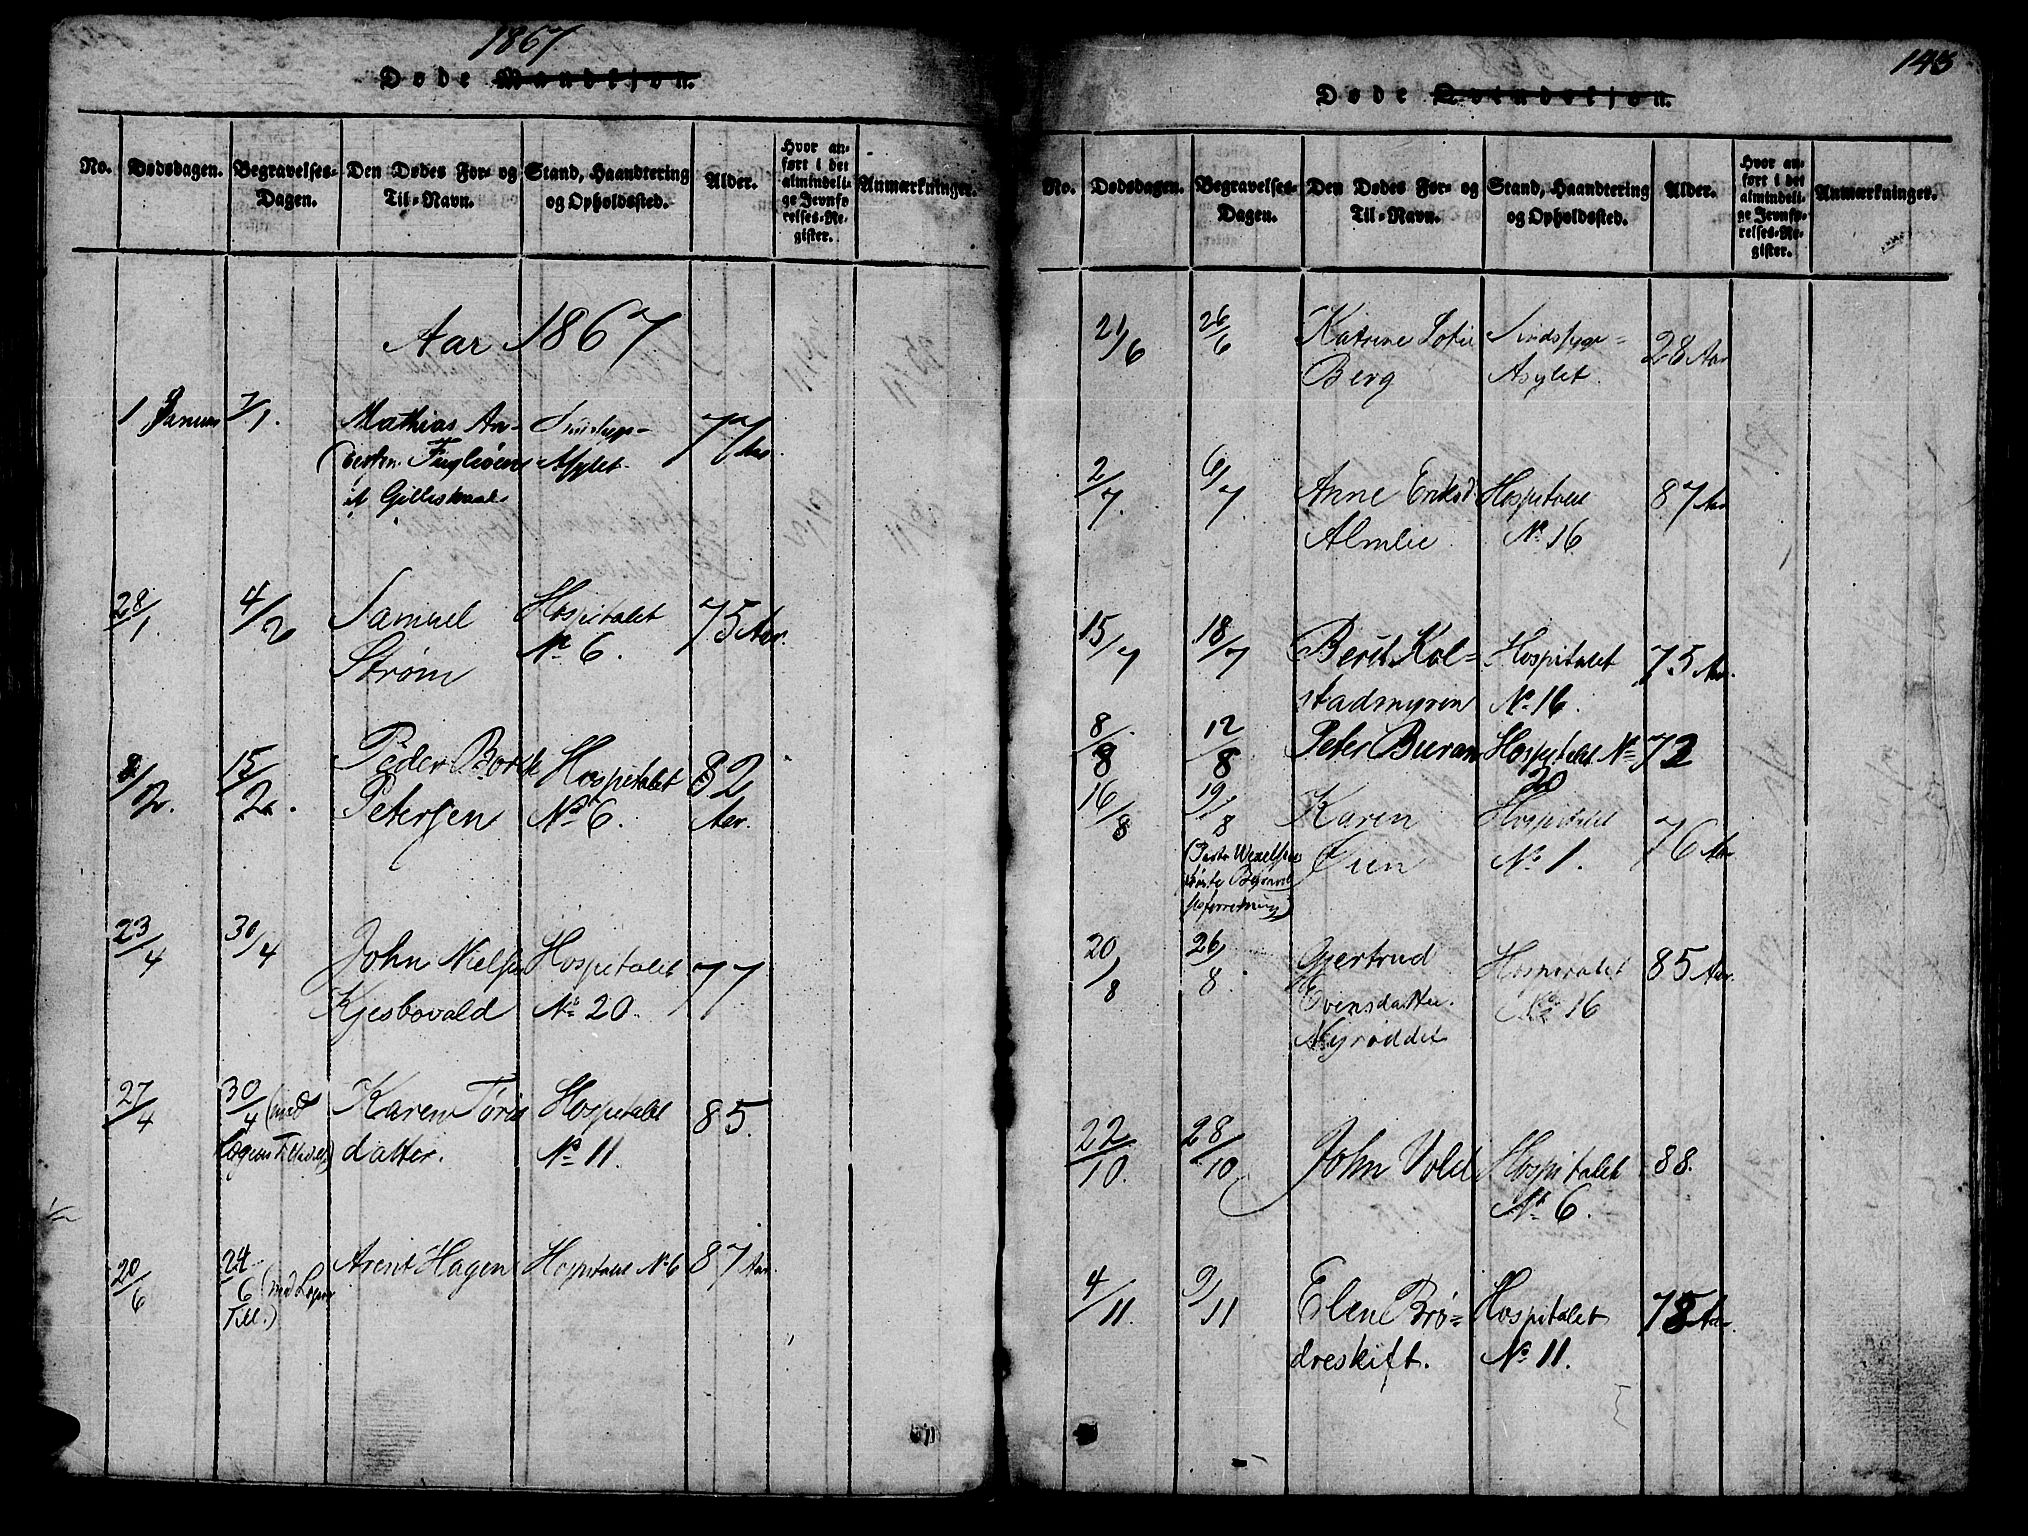 1867
Døde Mandkjøn.
No.
Dødsdagen.
Begravelses-
Dagen.
Den Dødes For- og
Til-Navn.
Stand, Haandtering
og Opholdssted.
Alder.
Hvor an-
ført i det
almindeli-
ge Jevnfø-
relses-Re-
gister.
Anmærkninger.
Aar 1867
1 Januar 7/1. Mathias An- Sindsyge- 77 Aar
Asylet
it Gilleskaal
28/1. 4/2 Samuel Hospitalet 75 Aar.
Strøm No 6.
8/2. 15/2. Peder Bork Hospitalet 82
Petersen No 6. Aar.
23/4 30/4 John Nielsen Hospitalet 77
Kjesbovald No 20.
27/4 30/4 (med Karen Tøris Hospitalet 85.
Lægens datter. No 11.
20/6 24/6 (med Lægens Arent Hagen Hospitalet No 6 87 Aar.
Till.)
143
Døde Qvindekjøn.
No.
Dødsdagen.
Begravelses-
Dagen.
Den Dødes For- og
Til-Navn.
Stand, Haandtering
og Opholdssted.
Alder.
Hvor an-
ført i det
almindeli-
ge Jevnfø-
relses-Re-
gister.
Anmærkninger.
21/6 26/6 Katrine Lotie Sindsyge- 28 Aar
Berg Asylet.
2/7. 6/7. Anne Eriksd. Hospitalet 87 Aar
Almlie No 16
15/7 18/7 Berit Kol= Hospitalet 75 Aar.
stadmyren No 16.
8/8 12/8 Peter Buran Hospitalet No 72
20
16/8 19/8 Karen Hospitalet 76 Aar
(Pastor Wexelsen Øien No 1.
20/8 26/8. Gjertrud Hospitalet 85 Aar.
Evensdatter. No 16
Nyrøddet
22/10. 28/10 John Vold Hospitalet 88.
No 6.
4/11. 9/11 Elene Brø= Hospitalet 75 Aar
dreskift. No 11.